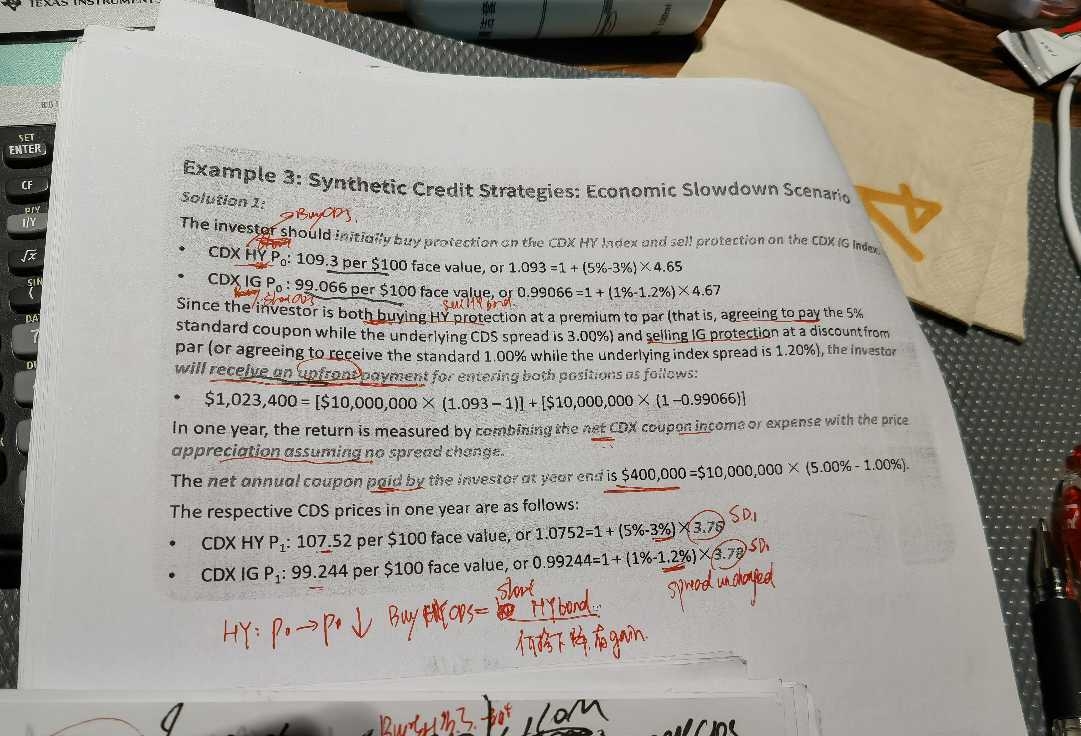 TEXAS INSTRUMENTS
SET
ENTER
CF
P/Y
I/Y
√x
SIN
(
7
Example 3: Synthetic Credit Strategies: Economic Slowdown Scenario
Solution 1:
→Buy CDS.
The investor should initially buy protection on the CDX HY Index and sell protection on the CDX IG Index.
• CDX HY P₀: 109.3 per $100 face value, or 1.093 =1 + (5%-3%)×4.65
• CDX IG P₀: 99.066 per $100 face value, or 0.99066 =1 + (1%-1.2%)×4.67
Since the investor is both buying HY protection at a premium to par (that is, agreeing to pay the 5%
standard coupon while the underlying CDS spread is 3.00%) and selling IG protection at a discount from
par (or agreeing to receive the standard 1.00% while the underlying index spread is 1.20%), the investor
will receive an upfront payment for entering both positions as follows:
• $1,023,400 = [$10,000,000 × (1.093 – 1)] + [$10,000,000 × (1 –0.99066)]
In one year, the return is measured by combining the net CDX coupon income or expense with the price
appreciation assuming no spread change.
The net annual coupon paid by the investor at year end is $400,000 =$10,000,000 × (5.00% - 1.00%).
The respective CDS prices in one year are as follows:
• CDX HY P₁: 107.52 per $100 face value, or 1.0752=1 + (5%-3%)×3.76 SD₁
• CDX IG P₁: 99.244 per $100 face value, or 0.99244=1+ (1%-1.2%)×3.78 SD₁
spread unchanged
HY: P₀→P₁ ↓ Buy CDS= HY bond
价格下降,有gain.